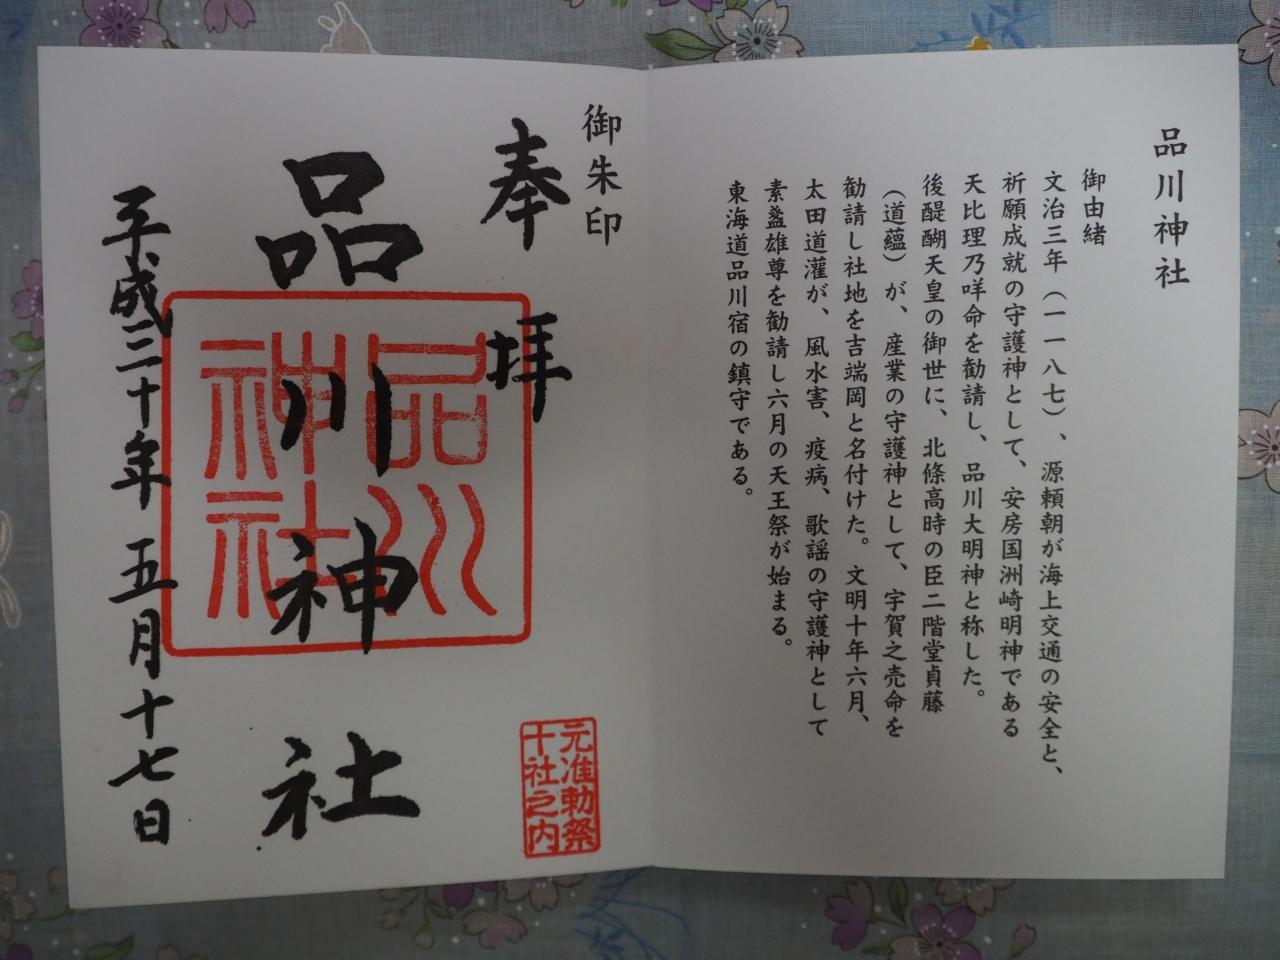 品川神社
御由緒
文治三年（一一八七）、源頼朝が海上交通の安全と、
祈願成就の守護神として、安房国洲崎明神である
天比理乃咩命を勧請し、品川大明神と称した。
後醍醐天皇の御世に、北條高時の臣二階堂貞藤
（道蘊）が、産業の守護神として、宇賀之売命を
勧請し社地を吉端岡と名付けた。文明十年六月、
太田道灌が、風水害、疫病、歌謡の守護神として
素盞雄尊を勧請し六月の天王祭が始まる。
東海道品川宿の鎮守である。
御朱印
奉拝
元准勅祭
十社之内
品川神社
品川
神社
平成三十年五月十七日